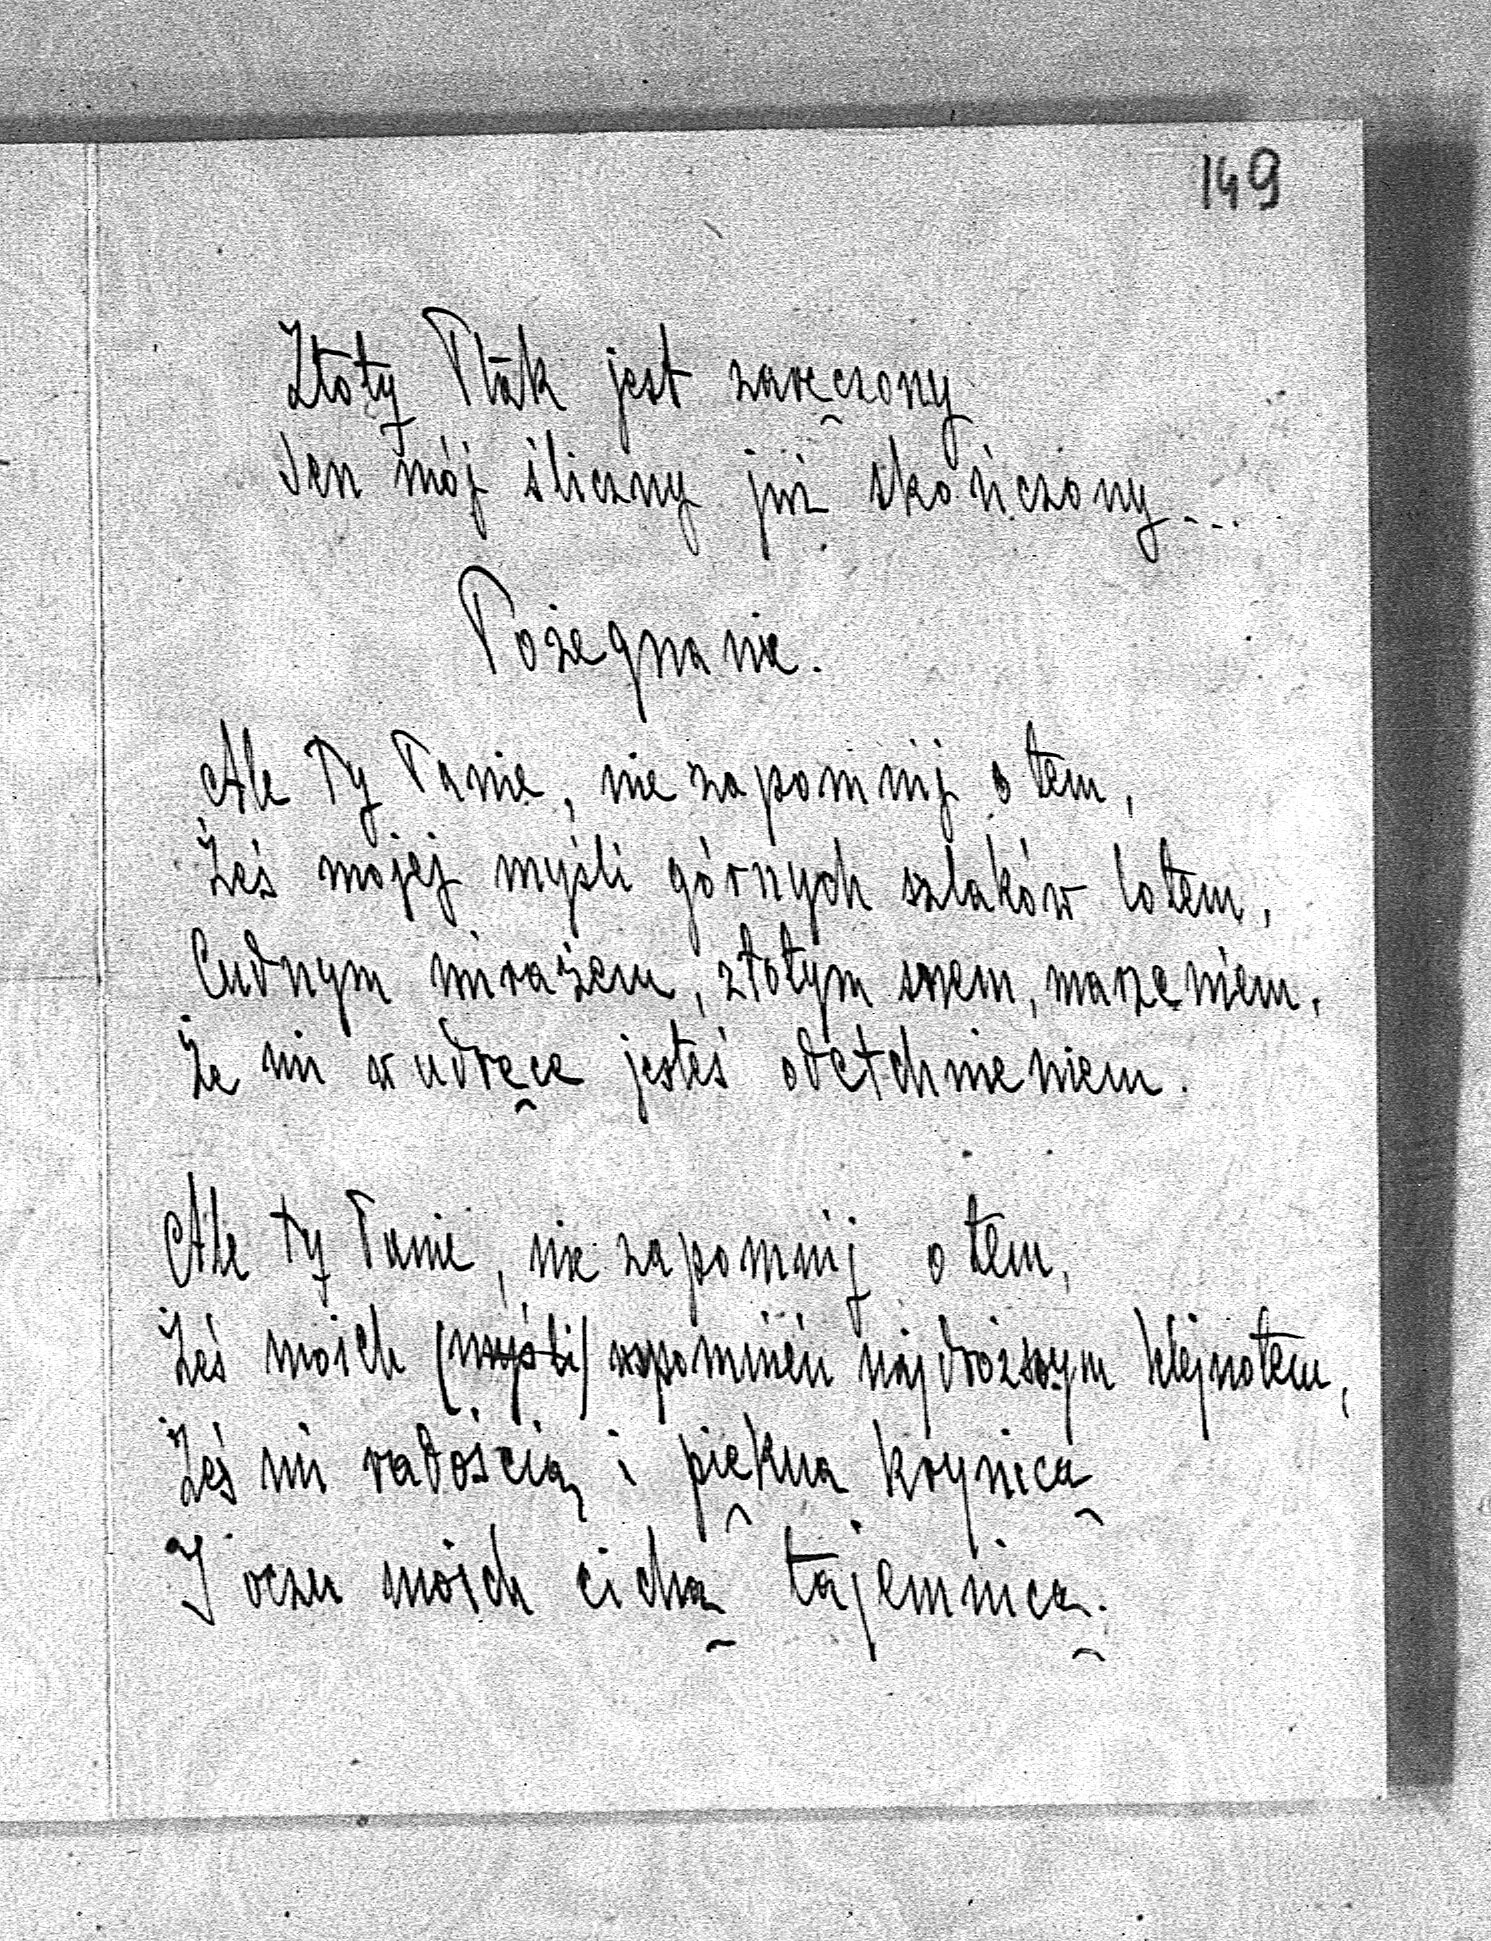 149
Złoty Ptak jest zaręczony
Sen mój śliczny już skończony...
Pożegnanie.
Ale Ty Panie, nie zapomnij o tem,
Żeś mojej myśli górnych szlaków lotem,
Cudnym mirażem, złotym snem, marzeniem,
Że mi w udręce jesteś odetchnieniem.
Ale Ty Panie, nie zapomnij o tem,
Żeś moich (myśli) wspomnień najdroższym klejnotem,
Żeś mi radością i piękna krynicą
I oczu moich cichą tajemnicą.